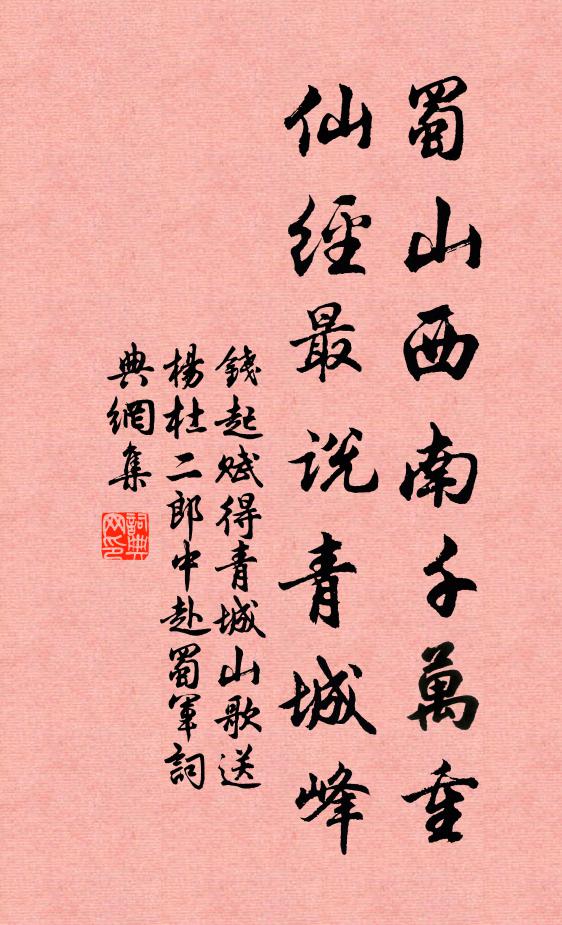 蜀山西南千萬重
仙經最説青城峰
錢起賦得青城山歌送
楊杜二郎中赴蜀軍詞
典網集
詞典
网印